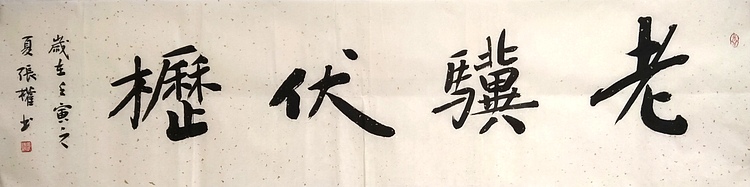 老驥伏櫪
歲在壬寅之
夏張權书